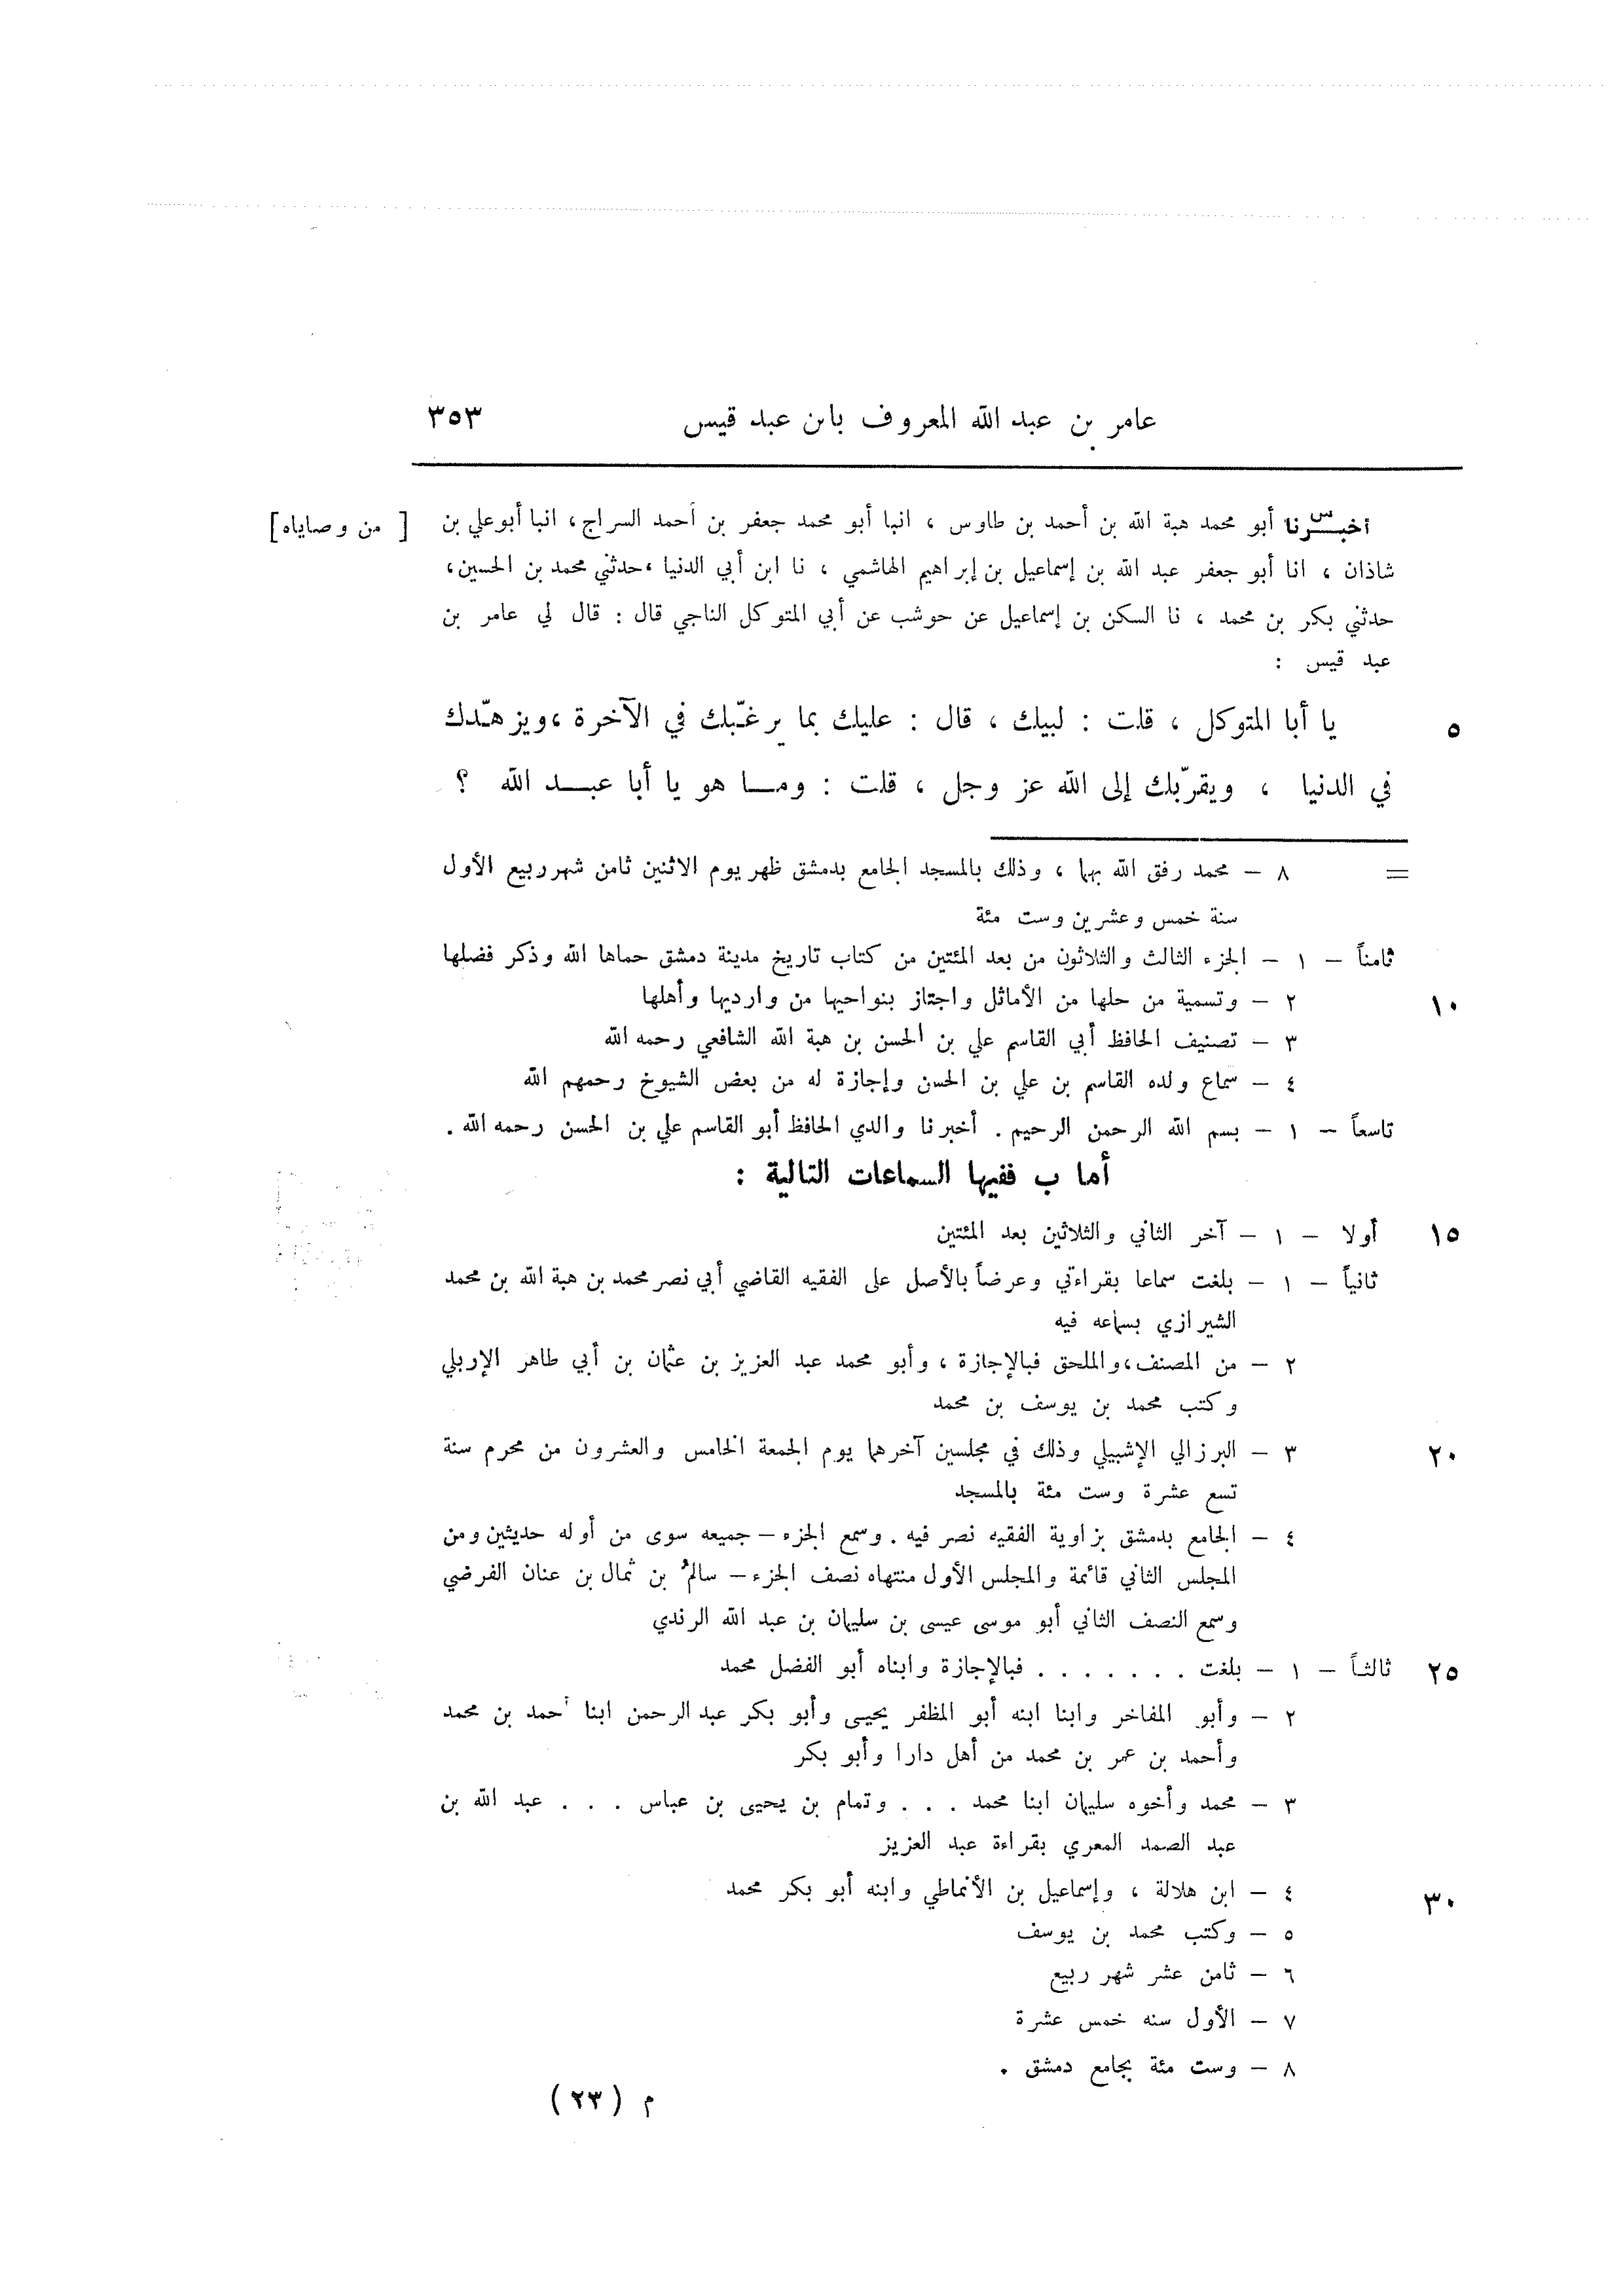 عامر بن عبد الله المعروف بابن عبد قيس ٣٥٣
أخبرنا أبو محمد هبة الله بن أحمد بن طاوس ، انبا أبو محمد جعفر بن أحمد السراج، انبا أبو علي بن [ من وصاياه]
شاذان ، انا أبو جعفر عبد الله بن إسماعيل بن إبراهيم الهاشمي ، نا ابن أبي الدنيا ، حدثني محمد بن الحسين،
حدثني بكر بن محمد ، نا السكن بن إسماعيل عن حوشب عن أبي المتوكل الناجي قال : قال لي عامر بن
عبد قيس :
٥ يا أبا المتوكل ، قلت : لبيك ، قال : عليك بما يرغّبك في الآخرة ، ويزهّدك
في الدنيا ، ويقرّبك إلى الله عز وجل ، قلت : ومــا هو يا أبا عبــد الله ؟
= ٨ – محمد رفق الله بهما ، وذلك بالمسجد الجامع بدمشق ظهر يوم الاثنين ثامن شهر ربيع الأول
سنة خمس وعشرين وست مئة
ثامناً – ١ – الجزء الثالث والثلاثون من بعد المئتين من كتاب تاريخ مدينة دمشق حماها الله وذكر فضلها
١٠ ٢ – وتسمية من حلها من الأماثل واجتاز بنواحيها من وارديها وأهلها
٣ – تصنيف الحافظ أبي القاسم علي بن الحسن بن هبة الله الشافعي رحمه الله
٤ – سماع ولده القاسم بن علي بن الحسن وإجازة له من بعض الشيوخ رحمهم الله
تاسعاً – ١ – بسم الله الرحمن الرحيم . أخبرنا والدي الحافظ أبو القاسم علي بن الحسن رحمه الله .
أما ب ففيها السماعات التالية :
١٥ أولا – ١ – آخر الثاني والثلاثين بعد المئتين
ثانياً – ١ – بلغت سماعا بقراءتي وعرضاً بالأصل على الفقيه القاضي أبي نصر محمد بن هبة الله بن محمد
الشيرازي بسماعه فيه
٢ – من المصنف، والملحق فبالإجازة ، وأبو محمد عبد العزيز بن عثمان بن أبي طاهر الإربلي
وكتب محمد بن يوسف بن محمد
٢٠ ٣ – البرزالي الإشبيلي وذلك في مجلسين آخرهما يوم الجمعة الخامس والعشرون من محرم سنة
تسع عشرة وست مئة بالمسجد
٤ – الجامع بدمشق بزاوية الفقيه نصر فيه . وسمع الجزء – جميعه سوى من أوله حديثين ومن
المجلس الثاني قائمة والمجلس الأول منتهاه نصف الجزء – سالمُ بن ثمال بن عنان الفرضي
وسمع النصف الثاني أبو موسى عيسى بن سليمان بن عبد الله الرندي
٢٥ ثالثاً – ١ – بلغت . . . . . . . فبالإجازة وابناه أبو الفضل محمد
٢ – وأبو المفاخر وابنا ابنه أبو المظفر يحيى وأبو بكر عبد الرحمن ابنا أحمد بن محمد
وأحمد بن عمر بن محمد من أهل دارا وأبو بكر
٣ – محمد وأخوه سليمان ابنا محمد . . . وتمام بن يحيى بن عباس . . . عبد الله بن
عبد الصمد المعري بقراءة عبد العزيز
٣٠ ٤ – ابن هلالة ، وإسماعيل بن الأنماطي وابنه أبو بكر محمد
٥ – وكتب محمد بن يوسف
٦ – ثامن عشر شهر ربيع
٧ – الأول سنه خمس عشرة
٨ – وست مئة بجامع دمشق .
م ( ٢٣ )